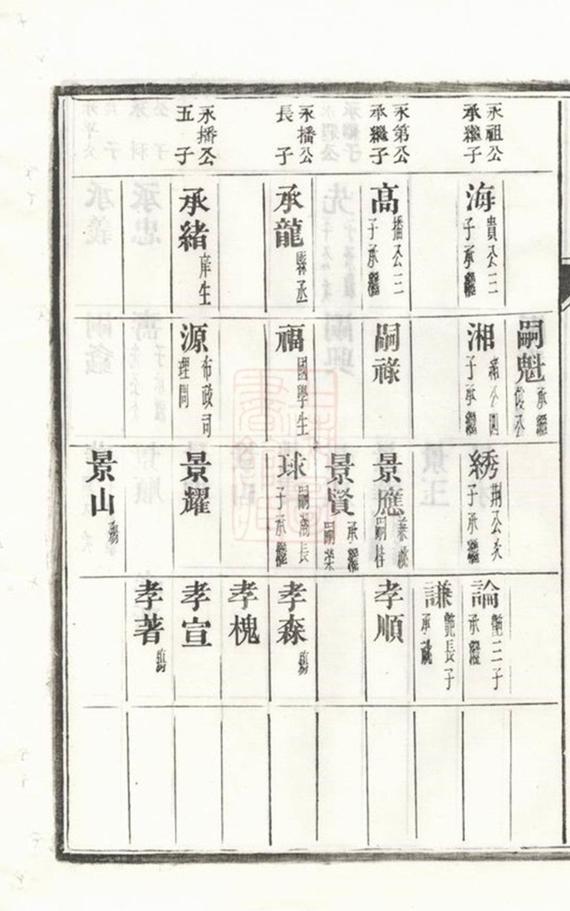 永祖公
承繼子
永第公
承繼子
永播公
長子
永播公
五子
海 貴公三
子承繼
高 播公三
子承繼
承龍 縣丞
承緒 庠生
嗣魁 承繼
俊公
湘 緒公四
子承繼
嗣祿
福 國學生
源 布政司
理問
綉 荆公次
子承繼
景應 兼祧
嗣桂
景賢 承繼
嗣榮
球 嗣南長
子承繼
景耀
景山
論 三子
承繼
謙 長子
承祧
孝順
孝森 殤
孝槐
孝宣
孝著 殤